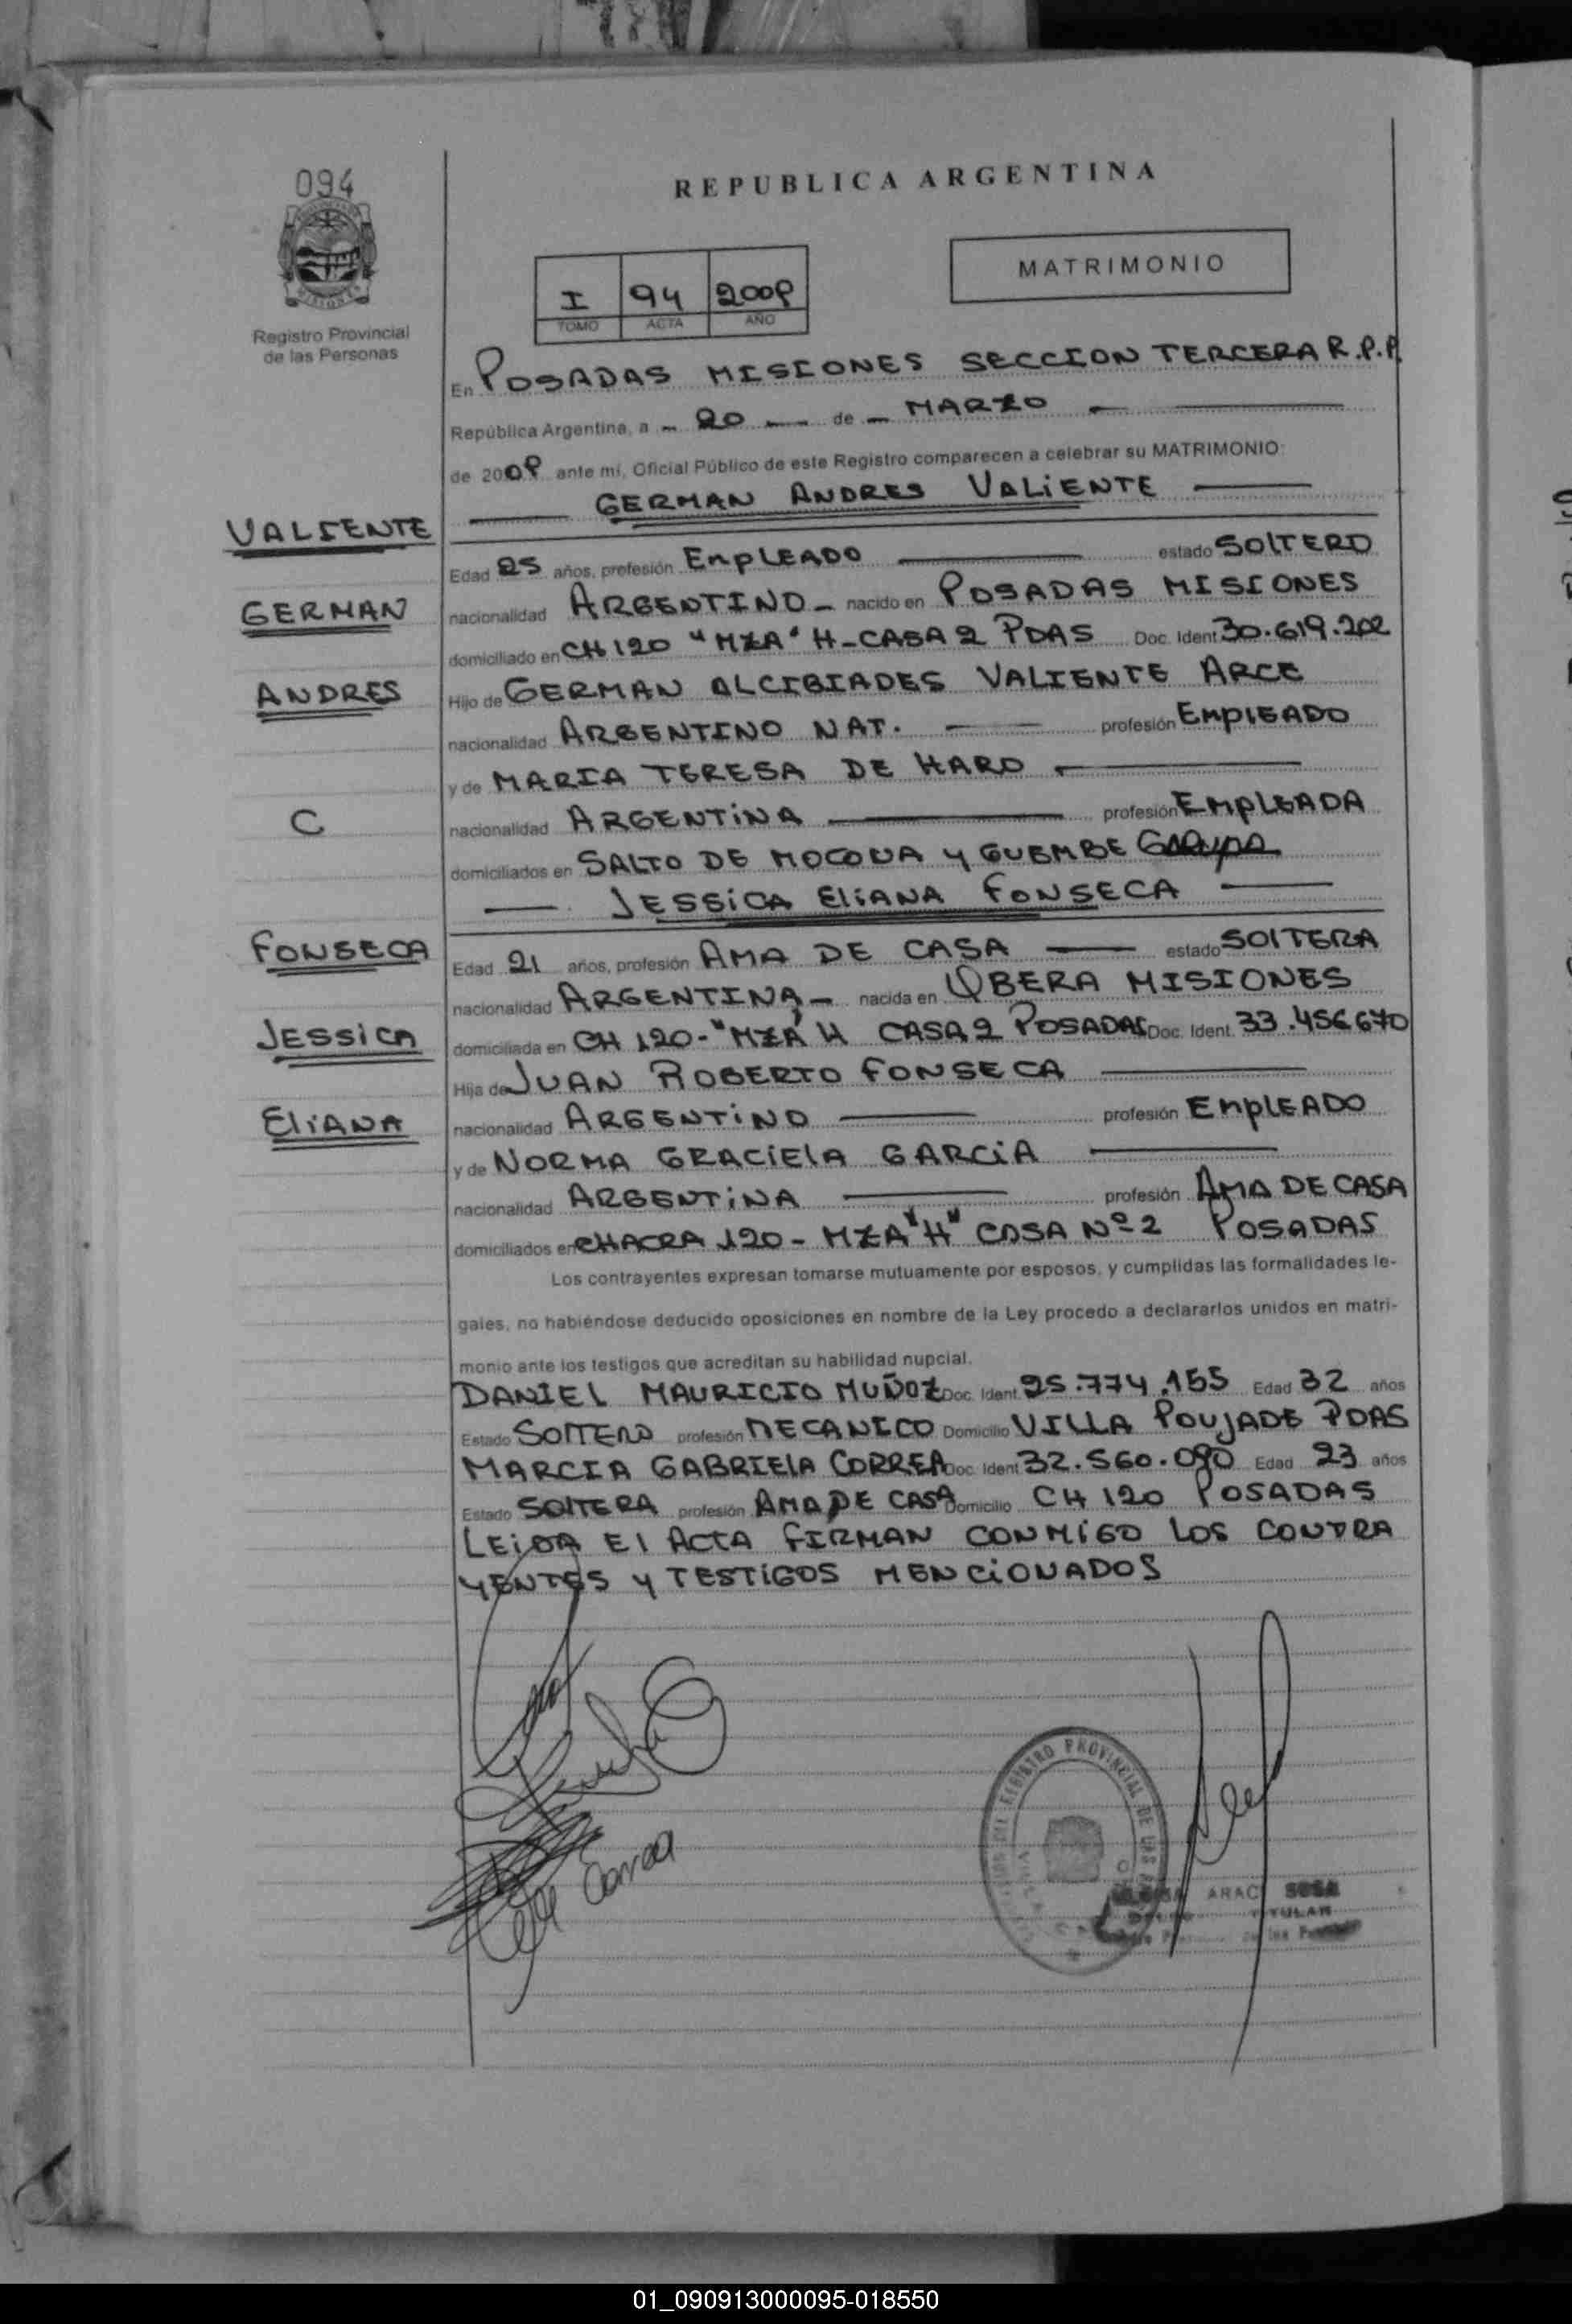 094
REPUBLICA ARGENTINA
MATRIMONIO
I 94 2009
TOMO ACTA AÑO
Registro Provincial
de las Personas
En POSADAS MISIONES SECCION TERCERA R.P.P.
República Argentina, a - 20 - de - MARZO -
de 2009 ante mí, Oficial Público de este Registro comparecen a celebrar su MATRIMONIO:
GERMAN ANDRES VALIENTE
VALIENTE
Edad 25 años, profesión EMPLEADO estado SOLTERO
GERMAN
nacionalidad ARGENTINO - nacido en POSADAS MISIONES
domiciliado en CH 120 "MZA" H-CASA 2 PDAS Doc. Ident. 30.619.202
ANDRES
Hijo de GERMAN ALCIBIADES VALIENTE ARCE
nacionalidad ARGENTINO NAT. profesión EMPLEADO
y de MARIA TERESA DE HARO
C
nacionalidad ARGENTINA profesión EMPLEADA
domiciliados en SALTO DE MOCONA Y GUEMBE GARUPA
JESSICA ELIANA FONSECA
FONSECA
Edad 21 años, profesión AMA DE CASA estado SOLTERA
nacionalidad ARGENTINA - nacida en OBERA MISIONES
JESSICA
domiciliada en CH 120-"MZA" H CASA 2 POSADAS Doc. Ident. 33.456670
Hija de JUAN ROBERTO FONSECA
ELIANA
nacionalidad ARGENTINO profesión EMPLEADO
y de NORMA GRACIELA GARCIA
nacionalidad ARGENTINA profesión AMA DE CASA
domiciliados en CHACRA 120 - MZA "H" CASA Nº 2 POSADAS
Los contrayentes expresan tomarse mutuamente por esposos, y cumplidas las formalidades le-
gales, no habiéndose deducido oposiciones en nombre de la Ley procedo a declararlos unidos en matri-
monio ante los testigos que acreditan su habilidad nupcial.
DANIEL MAURICIO MUÑOZ Doc. Ident. 25.774.155 Edad 32 años
Estado SOLTERO profesión MECANICO Domicilio VILLA POUJADE PDAS
MARCIA GABRIELA CORREA Doc. Ident 32.560.090 Edad 23 años
Estado SOLTERA profesión AMA DE CASA Domicilio CH 120 POSADAS
LEIDA El ACTA FIRMAN CONMIGO LOS CONTRA
YENTES Y TESTIGOS MENCIONADOS
REGISTRO PROVINCIAL DE LAS
SOSA
TITULAR
01_090913000095-018550